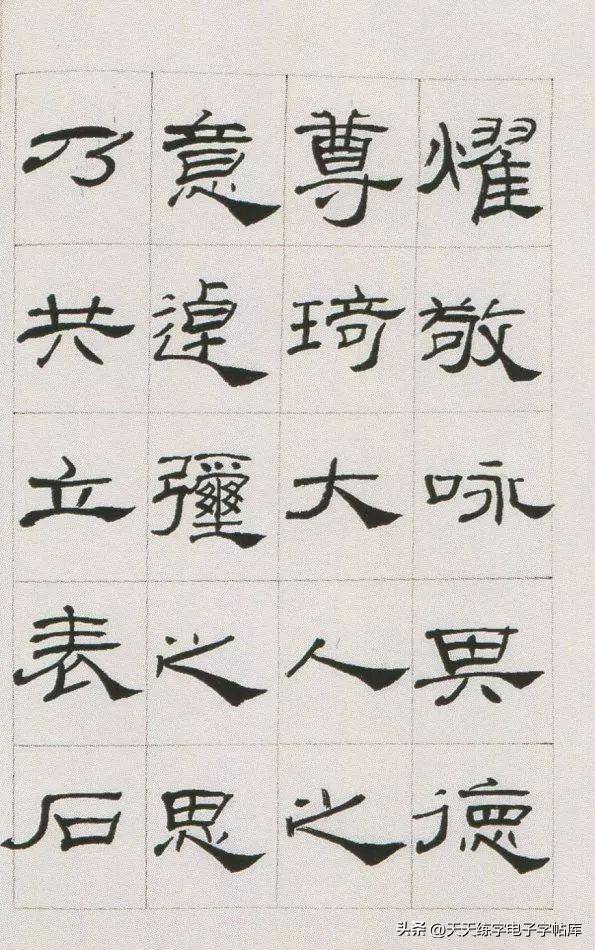 燿敬咏其德
尊琦大人之
意逴彌之思
乃共立表石
头条 @天天练字电子字帖库